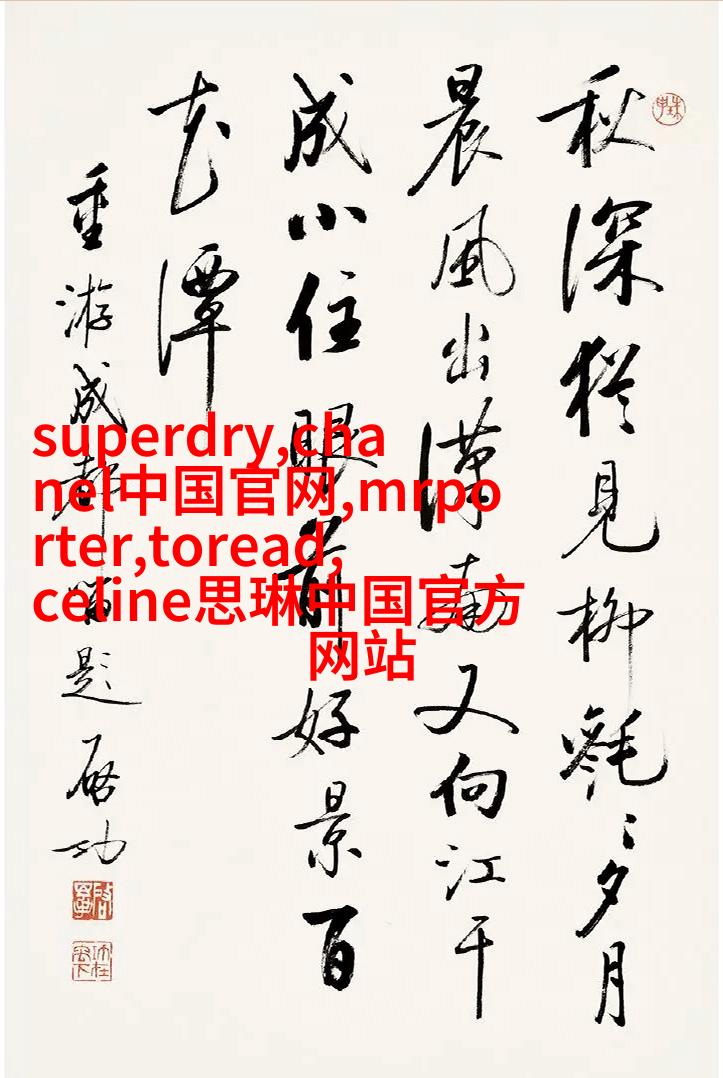 秋深猶見柳毿〻夕月
晨風出漢南又向江干
成小住眼前好景百
花潭
重游成都留題
啟功
superdry,cha
nel中国官网,mrpo
rter,toread,
celine思琳中国官方
网站